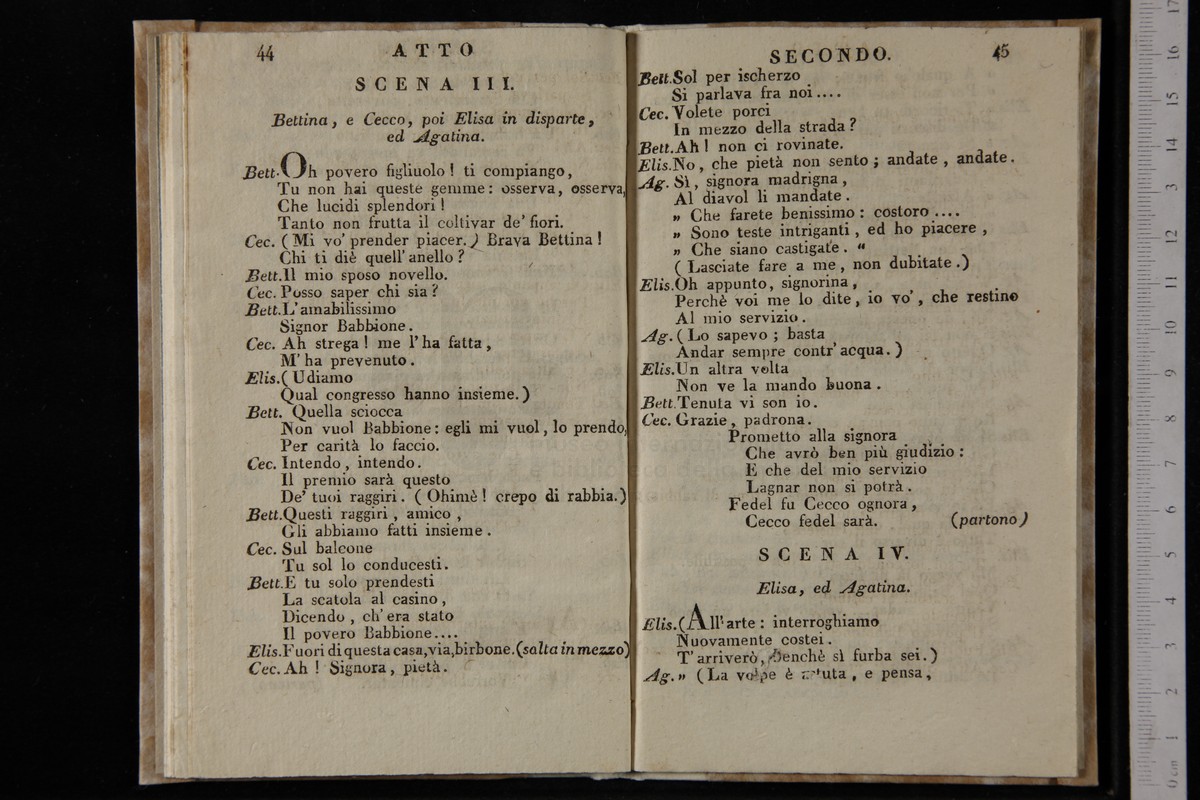 44 ATTO
SCENA III.
Bettina, e Cecco, poi Elisa in disparte,
ed Agatina.
Bett. Oh povero figliuolo! ti compiango,
Tu non hai queste gemme: osserva, osserva,
Che lucidi splendori!
Tanto non frutta il coltivar de' fiori.
Cec. (Mi vo' prender piacer.) Brava Bettina!
Chi ti diè quell' anello?
Bett. Il mio sposo novello.
Cec. Posso saper chi sia?
Bett. L'amabilissimo
Signor Babbione.
Cec. Ah strega! me l'ha fatta,
M'ha prevenuto.
Elis. (Udiamo
Qual congresso hanno insieme.)
Bett. Quella sciocca
Non vuol Babbione: egli mi vuol, lo prendo,
Per carità lo faccio.
Cec. Intendo, intendo.
Il premio sarà questo
De' tuoi raggiri. (Ohimè! crepo di rabbia.)
Bett. Questi raggiri, amico,
Gli abbiamo fatti insieme.
Cec. Sul balcone
Tu sol lo conducesti.
Bett. E tu solo prendesti
La scatola al casino,
Dicendo, ch'era stato
Il povero Babbione....
Elis. Fuori di questa casa, via, birbone. (salta in mezzo)
Cec. Ah! Signora, pietà.
SECONDO. 45
Bett. Sol per ischerzo
Si parlava fra noi....
Cec. Volete porci
In mezzo della strada?
Bett. Ah! non ci rovinate.
Elis. No, che pietà non sento; andate, andate.
Ag. Sì, signora madrigna,
Al diavol li mandate.
„ Che farete benissimo: costoro....
„ Sono teste intriganti, ed ho piacere,
„ Che siano castigate. “
(Lasciate fare a me, non dubitate.)
Elis. Oh appunto, signorina,
Perchè voi me lo dite, io vo', che restino
Al mio servizio.
Ag. (Lo sapevo; basta
Andar sempre contr'acqua.)
Elis. Un altra volta
Non ve la mando buona.
Bett. Tenuta vi son io.
Cec. Grazie, padrona.
Prometto alla signora
Che avrò ben più giudizio:
E che del mio servizio
Lagnar non si potrà.
Fedel fu Cecco ognora,
Cecco fedel sarà. (partono)
SCENA IV.
Elisa, ed Agatina.
Elis. (All'arte: interroghiamo
Nuovamente costei.
T'arriverò, benchè sì furba sei.)
Ag. „ (La volpe è astuta, e pensa,
17 16 15 14 13 12 11 10 9 8 7 6 5 4 3 2 1 0 cm